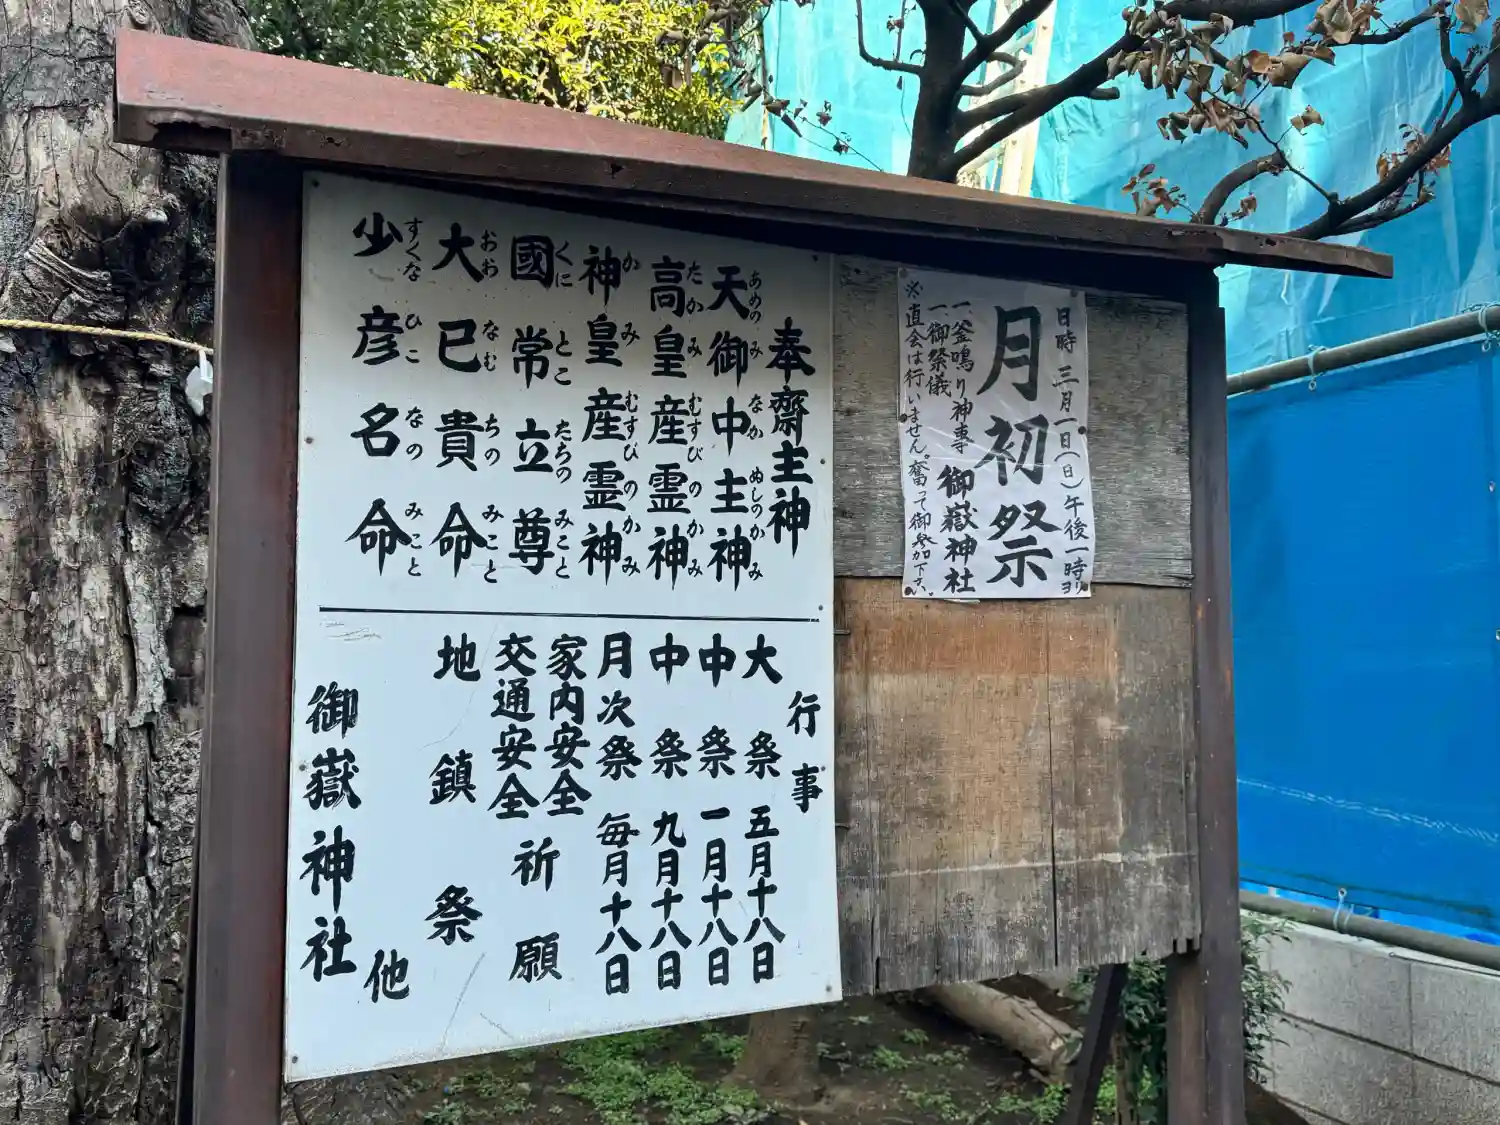 日時 三月一日(日)午後一時ヨリ
月初祭
御嶽神社
一、釜鳴り神事
一、御祭儀
※直会は行いません。奮って御参加下さい。
奉齋主神
天御中主神
あめのみなかぬしのかみ
高皇産霊神
たかみむすびのかみ
神皇産霊神
かみむすびのかみ
國常立尊
くにとこたちのみこと
大已貴命
おおなむちのみこと
少彦名命
すくなひこなのみこと
行事
大祭 五月十八日
中祭 一月十八日
中祭 九月十八日
月次祭 毎月十八日
家内安全
交通安全
祈願
地鎮祭
他
御嶽神社